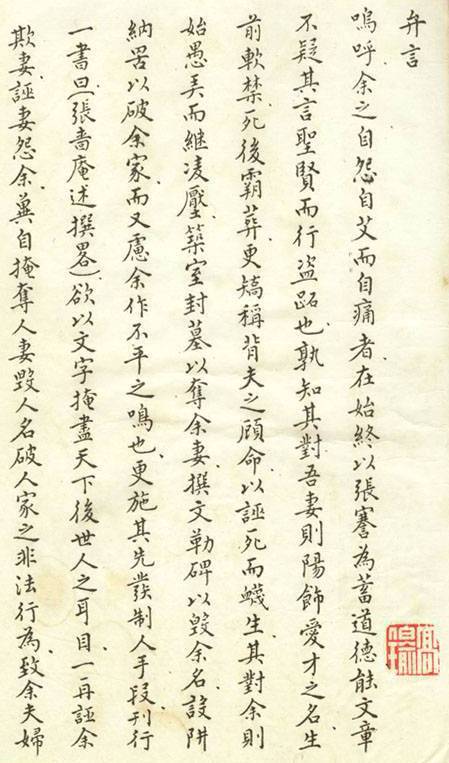 弁言
嗚呼余之自怨自艾而自痛者在始終以張謇為蓄道德能文章
不疑其言聖賢而行盜跖也孰知其對吾妻則陽飾愛才之名生
前軟禁死後霸葬更矯稱背夫之顧命以誣死而衊生其對余則
始愚弄而繼凌壓築室封墓以奪余妻撰文勒碑以毀余名設阱
納罟以破余家而又慮余作不平之鳴也更施其先發制人手段刊行
一書曰(張嗇庵述撰畧)欲以文字掩盡天下後世人之耳目一再誣余
欺妻誣妻怨余冀自掩奪人妻毀人名破人家之非法行為致余夫婦